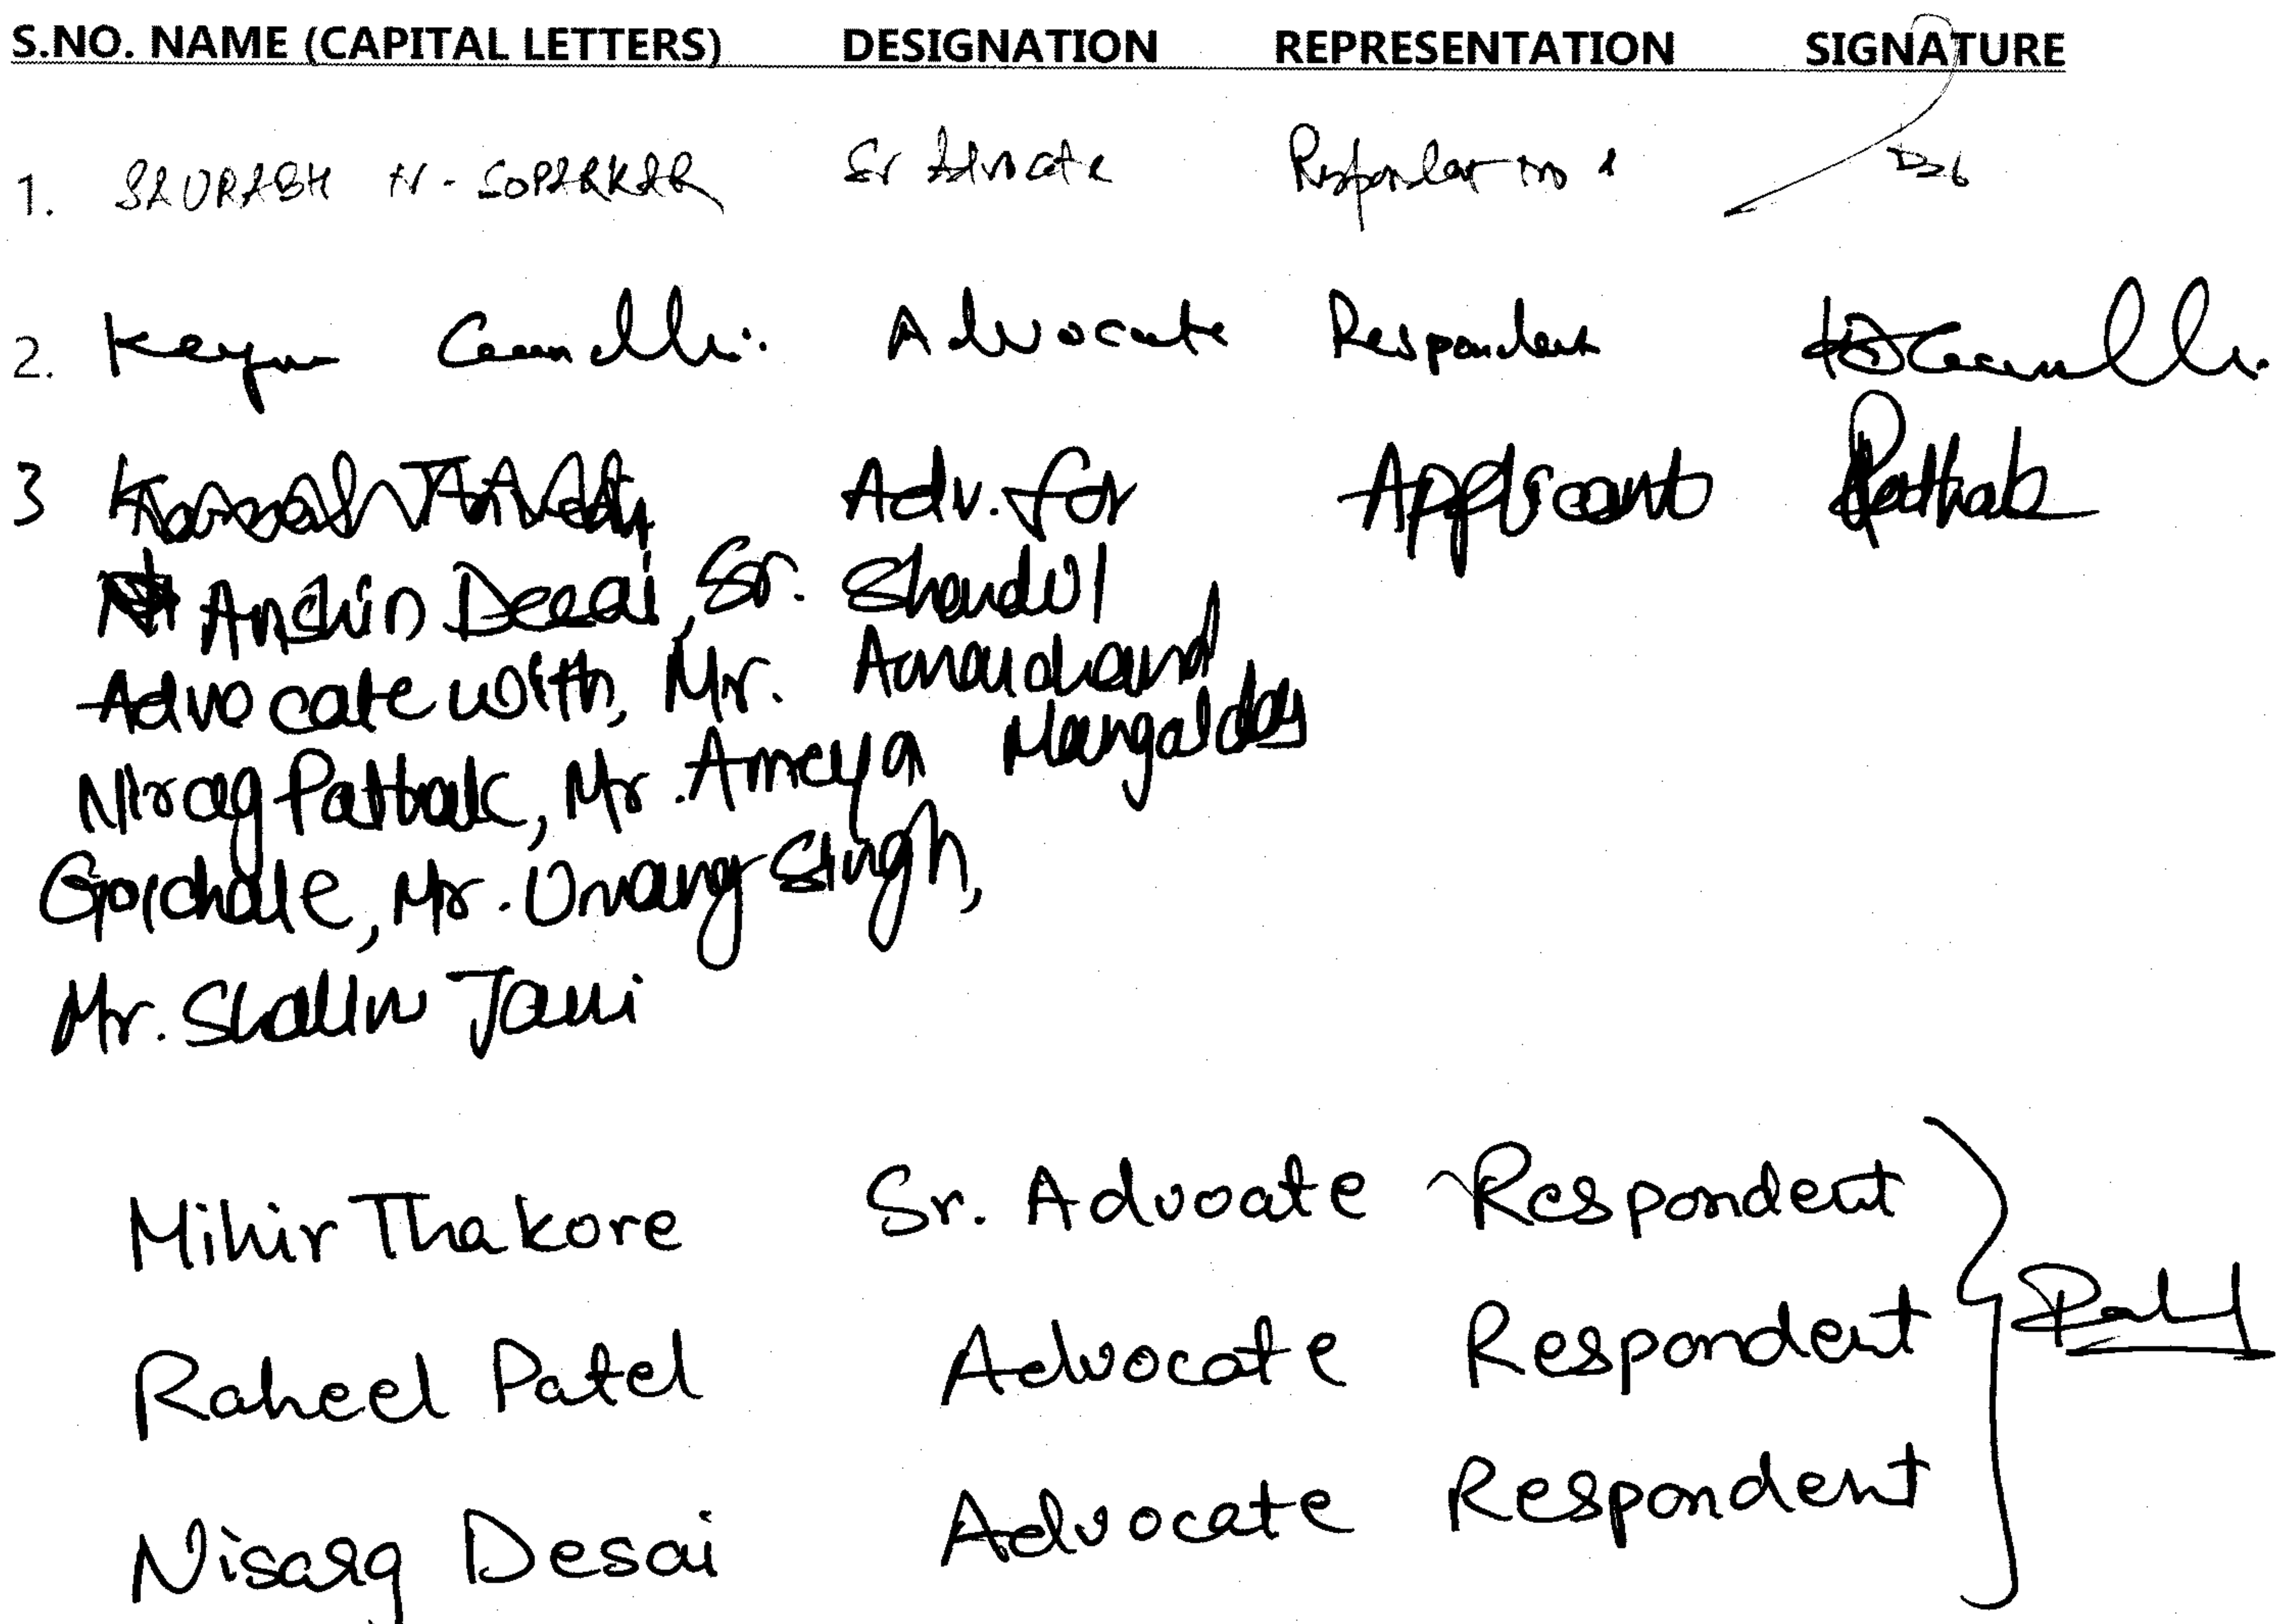 S.NO. NAME (CAPITAL LETTERS) DESIGNATION REPRESENTATION SIGNATURE
1. SAURABH N - SOPARKAR Sr Advocate Respondent no 1
2. Keyur Gandhi Advocate Respondent
3 Adv. for Applicant Pathak
Anshin Desai, Sr. Shardul
Advocate with, Mr. Amarchand
Nirag Pathak, Mr. Ameya Mangaldas
Gokhale, Mr. Umang Singh,
Mr. Shalin Jani
Mihir Thakore Sr. Advoate Respondent
Raheel Patel Advocate Respondent
Nisarg Desai Advocate Respondent